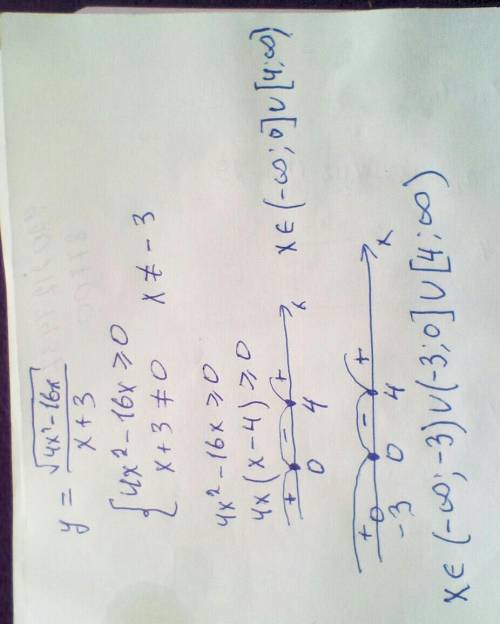 y = √(4x²-16x) / (x+3)
{ 4x²-16x ≥ 0
x+3 ≠ 0 x ≠ -3
4x²-16x ≥ 0
4x(x-4) ≥ 0
+ - + x
0 4
x ∈ (-∞; 0] ∪ [4; ∞)
+ - + x
-3 0 4
x ∈ (-∞; -3) ∪ (-3; 0] ∪ [4; ∞)